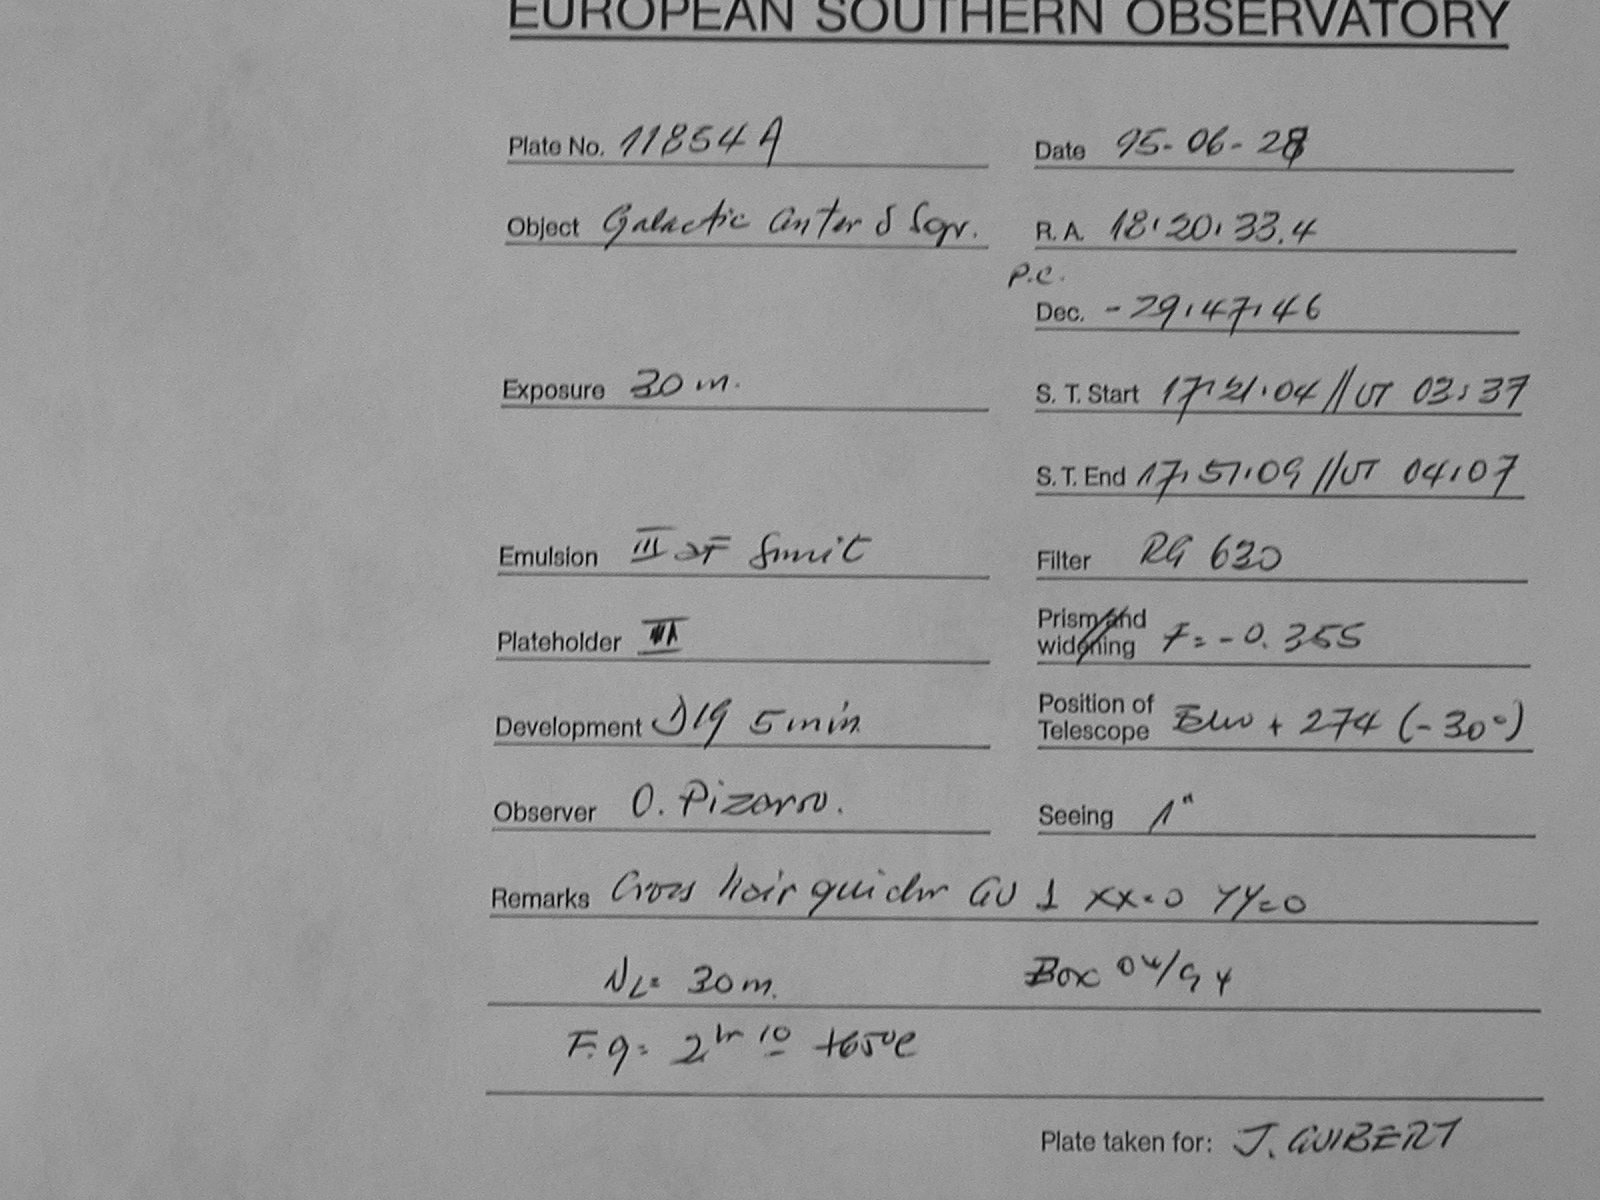 EUROPEAN SOUTHERN OBSERVATORY
Plate No. 11854A Date 95-06-28
Object Galactic Center & Sgr. R. A. 18:20:33.4
P.C.
Dec. -29:47:46
Exposure 30 m. S. T. Start 17:21:04 // UT 03:37
S. T. End 17:51:09 // UT 04:07
Emulsion III aF Filter RG 630
Plateholder III Prism and
widening F=-0.355
Development D19 5 min. Position of
Telescope + 274 (-30°)
Observer O. Pizarro. Seeing 1"
Remarks Cross hair guider GU 1 XX=0 YY=0
NL= 30 m. Box 04/94
F.g= 2 hr 10 +65°C
Plate taken for: J. GUIBERT